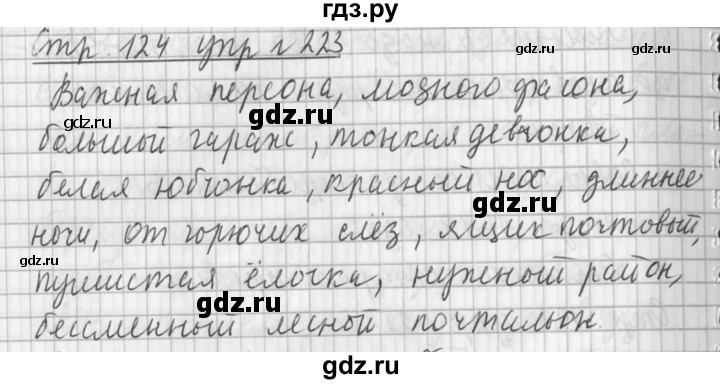 гдз.ру
Стр 124 упр г 223
gdz.ru gdz.ru
Важная персона, модного фасона,
gdz.ru gdz.ru
большой гараж, тонкая девчонка,
белая юбчонка, красный нос, длиннее
gdz.ru
ночи, от горючих слёз, ящик почтовый,
пушистая ёлочка, нужный район,
gdz.ru
бессменный лесной почтальон.
gdz.ru gdz.ru
gdz.ru